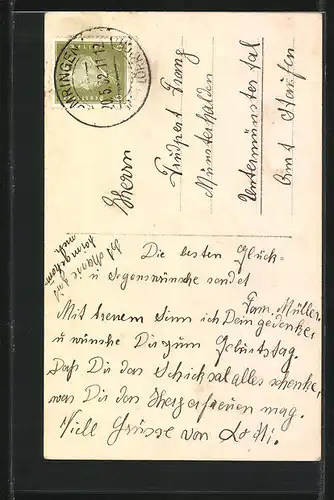 Herrn
Trudpert Franz
Münsterhalden
Untermünstertal
Amt Staufen
Die besten Glück-
u Segenswünsche sendet
Fam. Müller.
Mit treuem Sinn ich Dein gedenke,
u wünsche Dir zum Geburtstag.
Daß Dir das Schicksal alles schenke,
was Dir das Herz erfreuen mag.
Viell Grüsse von